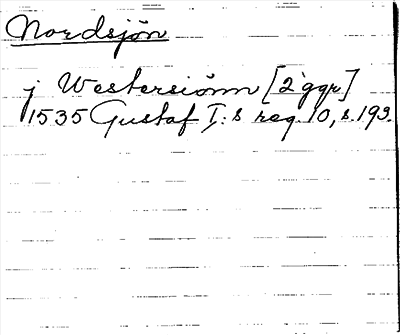 Nordsjön
j Westersiönn [2 ggr]
1535 Gustaf I:s reg. 10, s. 193.